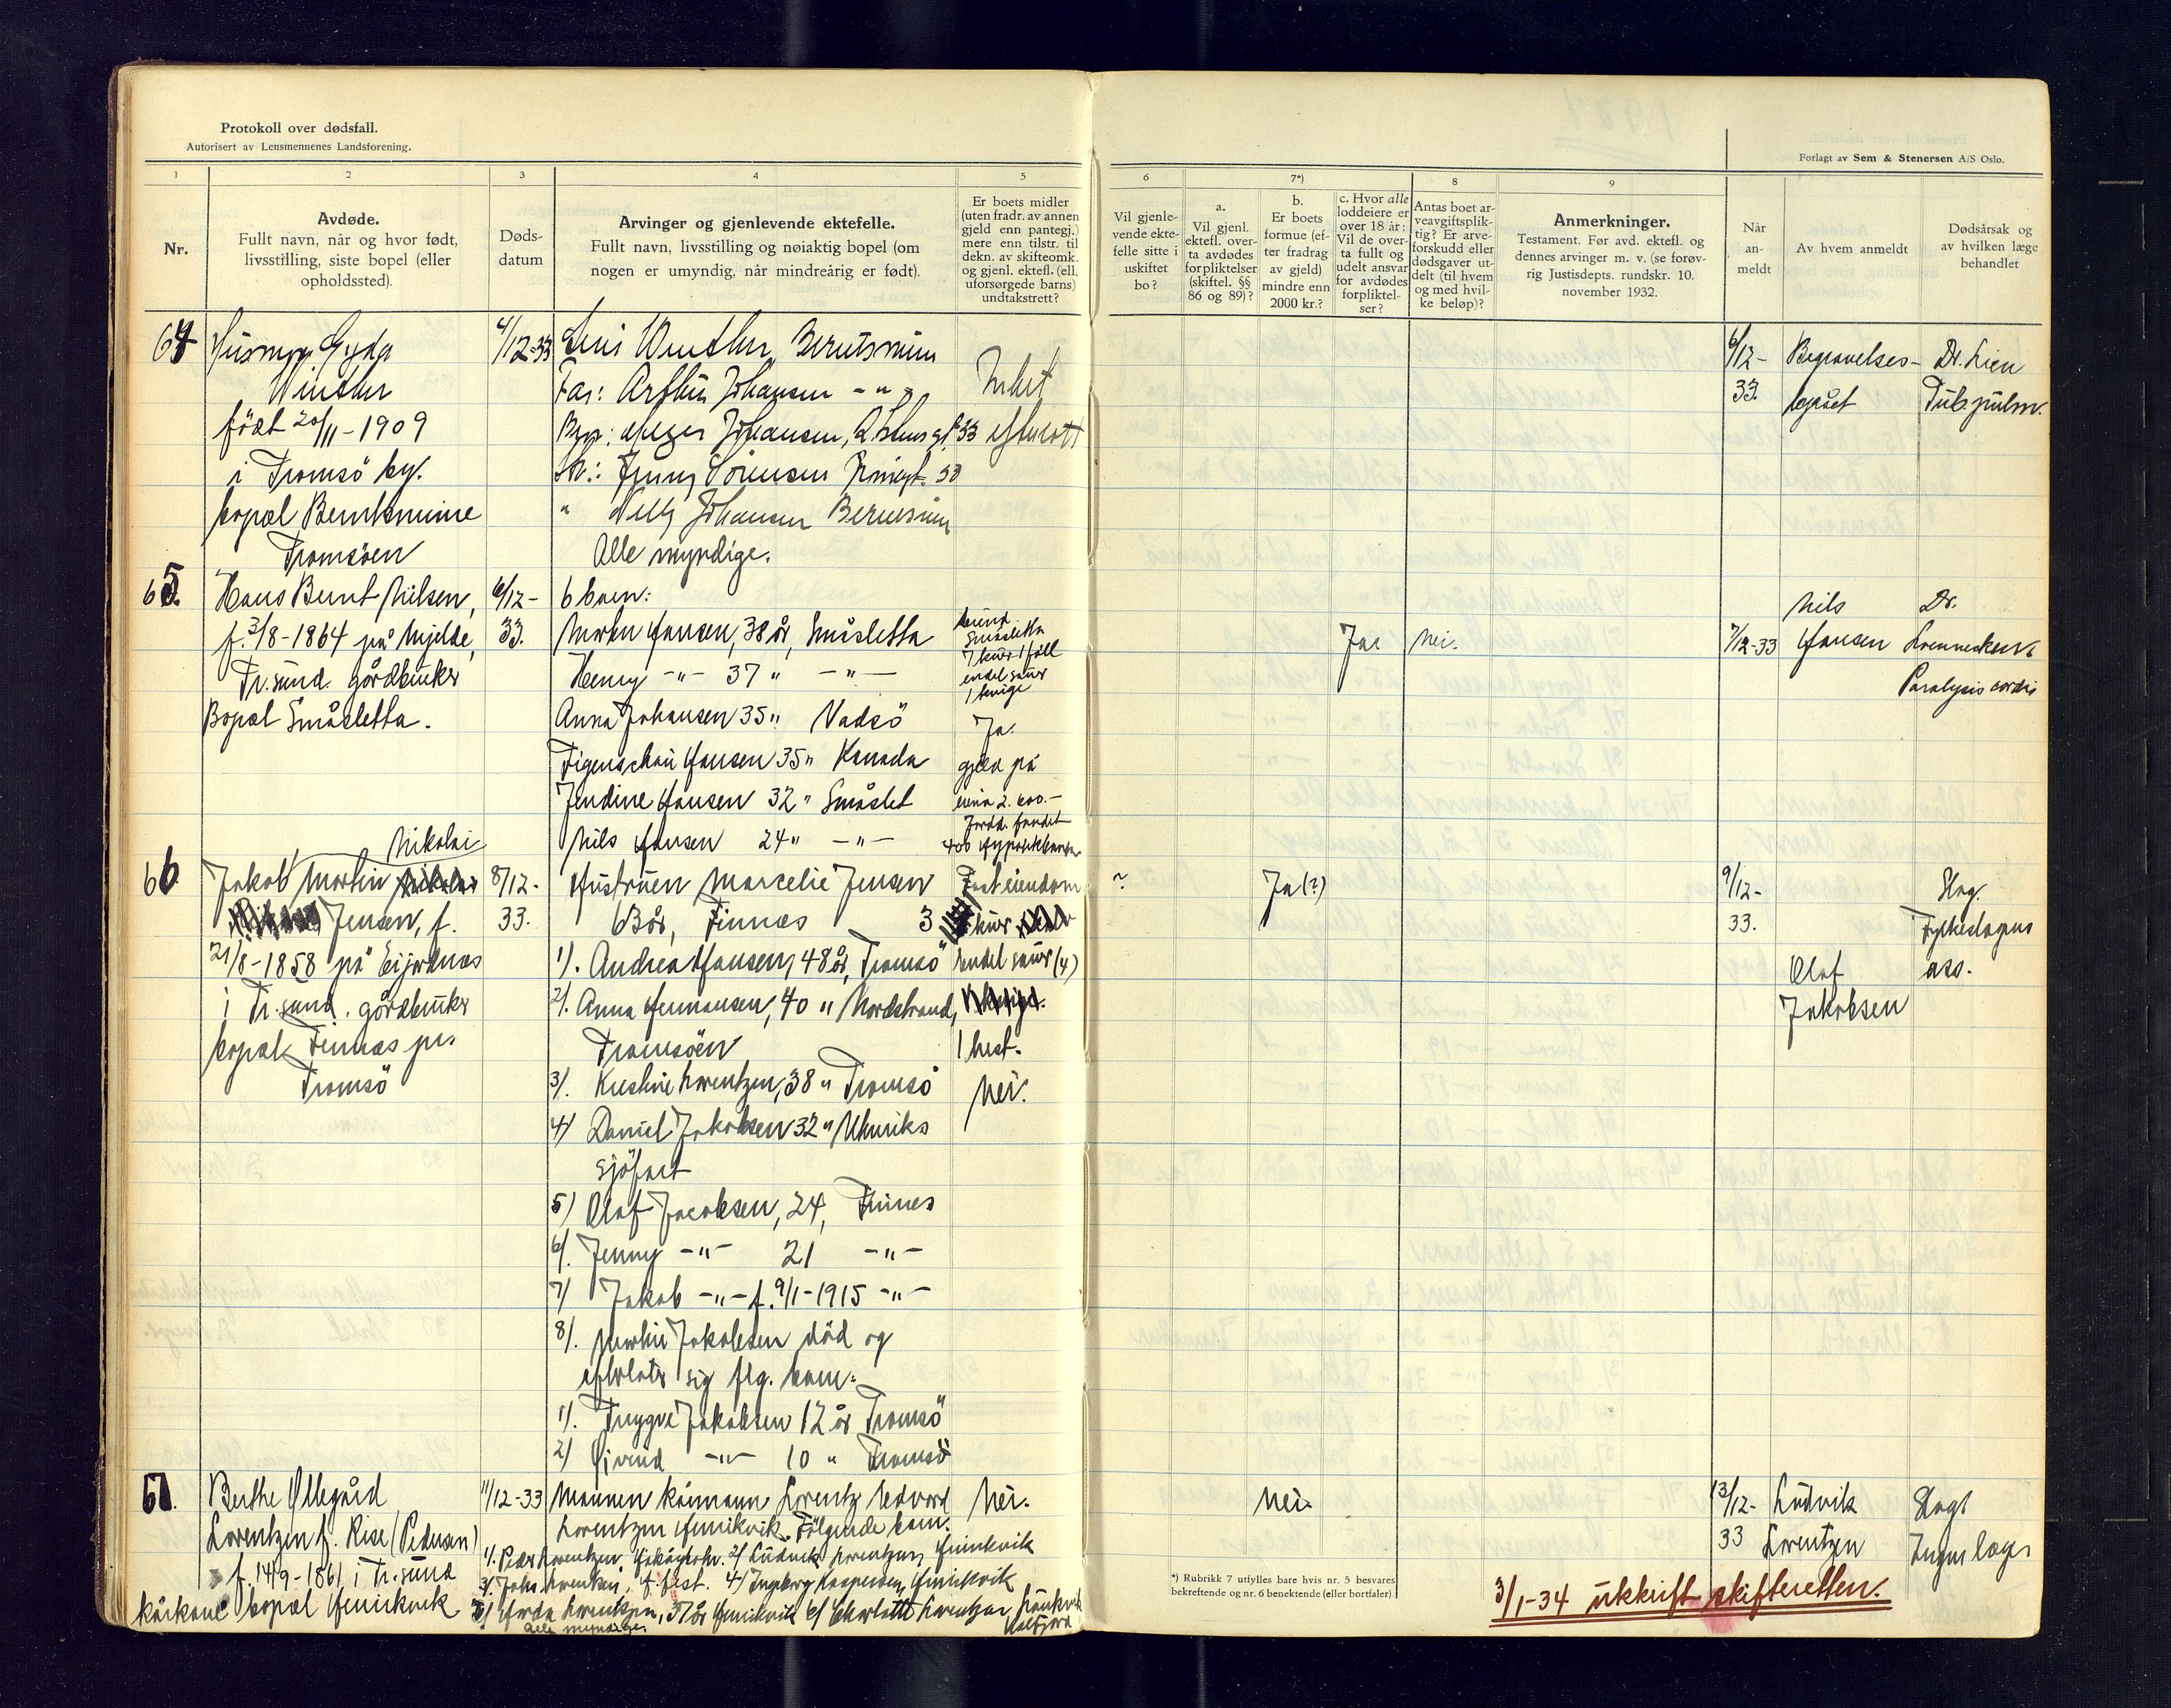 Protokoll over dødsfall.
Autorisert av Lensmennenes Landsforening.
Forlagt av Sem & Stenersen A/S Oslo.
1
2
3
4
5
6
7*)
8
9
Nr.
Avdøde.
Fullt navn, når og hvor født,
livsstilling, siste bopel (eller
opholdssted).
Døds-
datum
Arvinger og gjenlevende ektefelle.
Fullt navn, livsstilling og nøiaktig bopel (om
nogen er umyndig, når mindreårig er født).
Er boets midler
(uten fradr. av annen
gjeld enn pantegj.)
mere enn tilstr. til
dekn. av skifteomk.
og gjenl. ektef. (ell.
uforsørgede barns)
undtakstrett?
Vil gjenle-
vende ekte-
felle sitte i
uskiftet
bo?
a.
Vil gjenl.
ektefl. over-
ta avdødes
forpliktelser
(skiftel. §§
86 og 89)?
b.
Er boets
formue (ef-
ter fradrag
av gjeld)
mindre enn
2000 kr.?
c. Hvor alle
loddeiere er
over 18 år:
Vil de over-
ta fullt og
udelt ansvar
for avdødes
forpliktel-
ser?
Antas boet ar-
veavgiftsplik-
tig? Er arve-
forskudd eller
dødsgaver ut-
delt (til hvem
og med hvil-
ke beløp)?
Anmerkninger.
Testament. Før avd. ektefl. og
dennes arvinger m. v. (se forøv-
rig Justisdepts. rundskr. 10.
november 1932.
Når
an-
meldt
Av hvem anmeldt
Dødsårsak og
av hvilken læge
behandlet
64
Gyda
Winther
født 20/11-1909
i Tromsö by.
bopæl Berntsminne
Tromsöen
4/12-33
Winther
Far: Arthur Johansen -"-
Johansen,
Jenny Sörensen
" Willy Johansen
Alle myndige.
Intet
efterlatt
6/12-
33.
Begravelses-
byrået
Dr. Lien
Tub. pulm.
65.
Hans Bernt Nilsen,
f. 3/8-1864 på Mjelde,
Tr.sund. gårdbruker
Bopæl Småsletta.
6/12-
33.
6 barn:
Morten Hansen, 38 år, Småsletta
Henry -"- 37 " -"-
Anna Johansen 35 " Vadsö
Figenschau Hansen 35 " Kanada
Jendine Hansen 32 " Småslet
Nils Hansen 24 " -"-
Småsletta
endel sauer
Ja.
gjeld på
Ja
Nei.
7/12-33
Nils
Hansen
Dr.
Paralysis cordis
66
Nikolai
Jakob Martin
Jensen, f.
21/8-1858 på
i Tr.sund. gårdbruker
bopæl Finnæs pr.
Tromsö
8/12-
33.
Hustruen Marcelie Jensen
63 år, Finnæs
1). Andrea Hansen, 48 år, Tromsö
2). Anna Hermansen, 40 " Nordstrand,
Tromsöen
3). Kristine Lorentzen, 38 " Tromsö
4) Daniel Jakobsen 32 " Utenriks
sjöfart
5) Olaf Jacobsen, 24, Finnes
6). Jenny -"- 21 -"-
7) Jakob -"- f. 9/1-1915 -"-
8). Martin Jakobsen död og
efterlater sig flg. barn:
1). Trygve Jakobsen 12 år Tromsö
2) Øivind -"- 10 " Tromsö
Fast eiendom
3 kuer
endel sauer (4)
1 hest.
Nei.
?
Ja (?)
9/12-
33.
Olaf
Jakobsen
Slag.
Fylkeslægens
ass.
67.
Berthe Ollegård
Lorentzen f. Rise (Pedersen)
f. 14/9-1861 i Tr.sund
bopæl
11/12-33
Mannen kårmann Lorentz Edvard
Lorentzen Følgende barn:
1). Peder Lorentzen, 2) Ludvik Lorentzen,
3) Johs. Lorentzen, 4) Ingeborg Kaspersen,
Lorentzen, 37 år 6) Charlotte Lorentzen,
Alle myndige.
Nei.
Nei.
13/12-
33
Ludvik
Lorentzen
Slag
Ingen læge
*) Rubrikk 7 utfylles bare hvis nr. 5 besvares
bekreftende og nr. 6 benektende (eller bortfaller)
3/1-34 utskrift skifteretten.